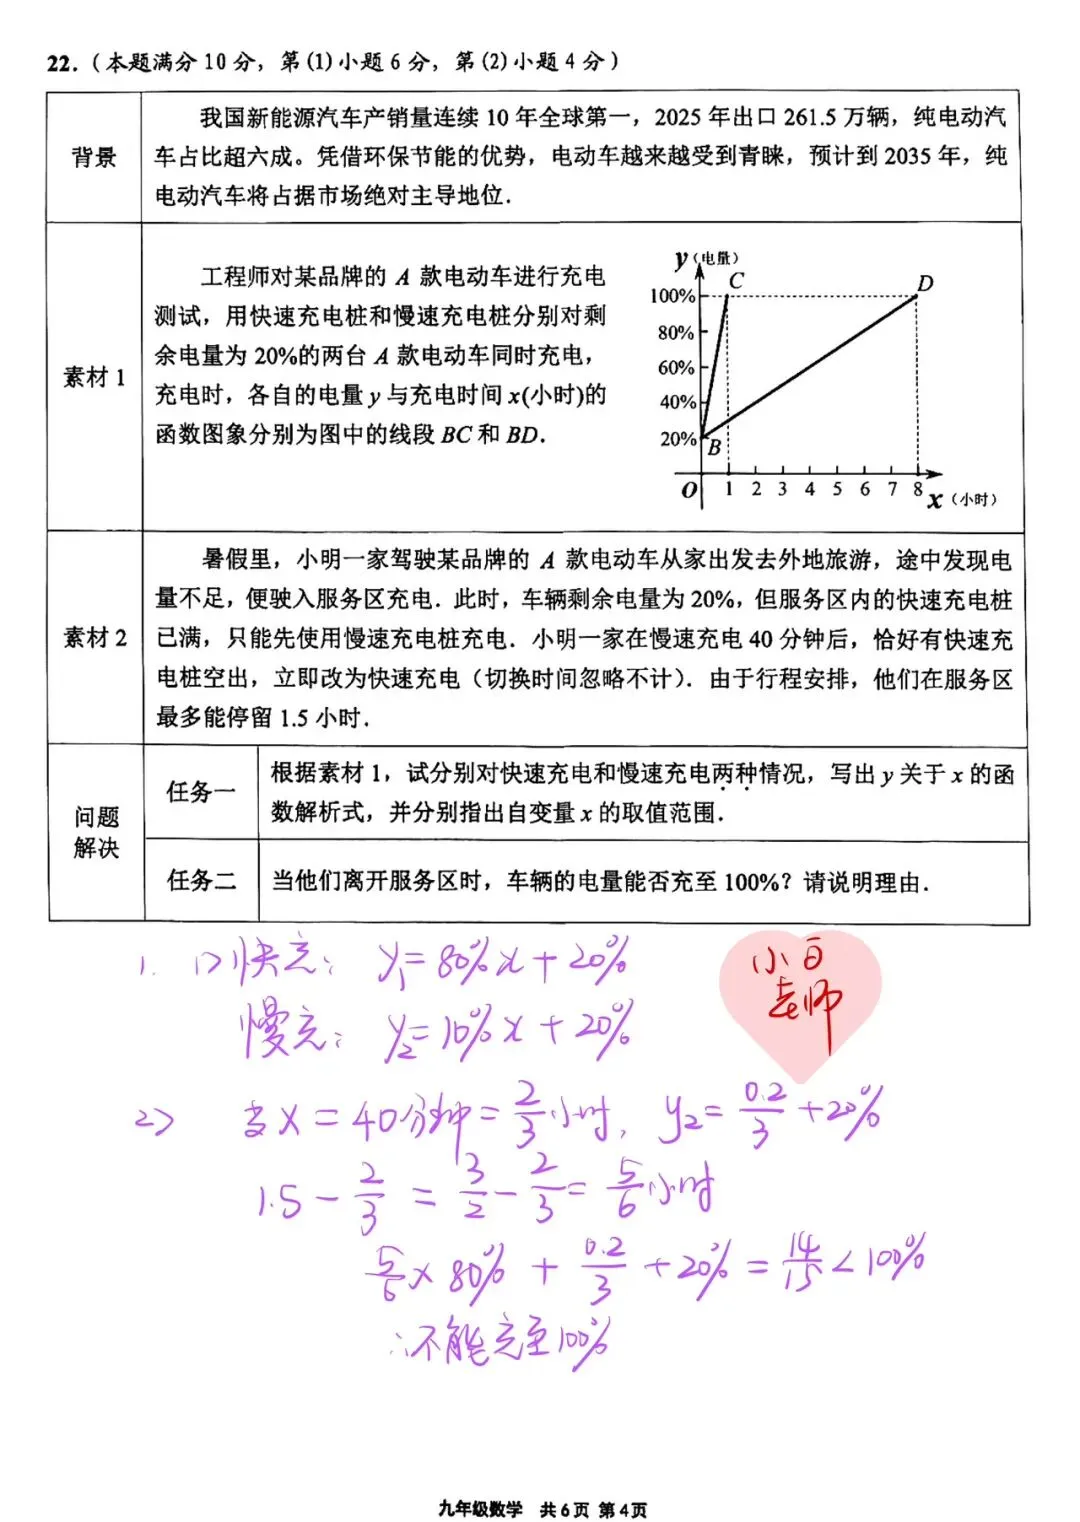 22.（本题满分10分，第(1)小题6分，第(2)小题4分）
背景
我国新能源汽车产销量连续10年全球第一，2025年出口261.5万辆，纯电动汽
车占比超六成。凭借环保节能的优势，电动车越来越受到青睐，预计到2035年，纯
电动汽车将占据市场绝对主导地位.
素材1
工程师对某品牌的A款电动车进行充电
测试，用快速充电桩和慢速充电桩分别对剩
余电量为20%的两台A款电动车同时充电，
充电时，各自的电量y与充电时间x(小时)的
函数图象分别为图中的线段BC和BD.
y（电量）
C
D
100%
80%
60%
40%
20%
B
O 1 2 3 4 5 6 7 8 x（小时）
素材2
暑假里，小明一家驾驶某品牌的A款电动车从家出发去外地旅游，途中发现电
量不足，便驶入服务区充电.此时，车辆剩余电量为20%，但服务区内的快速充电桩
已满，只能先使用慢速充电桩充电.小明一家在慢速充电40分钟后，恰好有快速充
电桩空出，立即改为快速充电（切换时间忽略不计）.由于行程安排，他们在服务区
最多能停留1.5小时.
问题
解决
任务一
根据素材1，试分别对快速充电和慢速充电两种情况，写出y关于x的函
数解析式，并分别指出自变量x的取值范围.
任务二
当他们离开服务区时，车辆的电量能否充至100%？请说明理由.
1. 1>快充: y₁=80%x+20%
慢充: y₂=10%x+20%
小白
老师
2> x=40分钟=2/3小时, y₂=0.2/3+20%
1.5-2/3=3/2-2/3=5/6小时
5/6×80%+0.2/3+20%=14/15<100%
∴不能充至100%
九年级数学 共6页 第4页